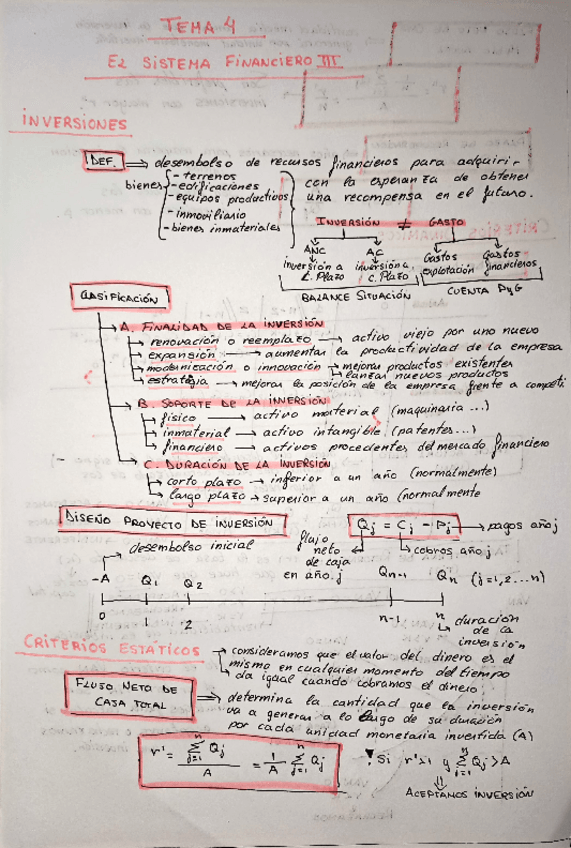 TEMA 4
EL SISTEMA FINANCIERO III
INVERSIONES
DEF. ⇒ desembolso de recursos financieros para adquirir
bienes
- terrenos
- edificaciones
- equipos productivos
- inmoviliario
- bienes inmateriales
con la esperanza de obtener
una recompensa en el futuro.
INVERSIÓN ≠ GASTO
ANC AC Gastos explotación Gastos financieros
inversión a L. Plazo inversión a C. Plazo
BALANCE SITUACIÓN CUENTA PyG
CLASIFICACIÓN
A. FINALIDAD DE LA INVERSIÓN
renovación o reemplazo → activo viejo por uno nuevo
expansión → aumentar la productividad de la empresa
modernización o innovación → mejorar productos existentes
→ lanzar nuevos productos
estrategia → mejorar la posición de la empresa frente a competi
B. SOPORTE DE LA INVERSIÓN
físico → activo material (maquinaria ...)
inmaterial → activo intangible (patentes...)
financiero → activos procedentes del mercado financiero
C. DURACIÓN DE LA INVERSIÓN
corto plazo → inferior a un año (normalmente)
largo plazo → superior a un año (normalmente
DISEÑO PROYECTO DE INVERSIÓN
Qj = Cj - Pj → pagos año j
cobros año j
flujo neto de caja en año j
desembolso inicial
-A Q1 Q2 Qn-1 Qn (j=1,2...n)
0 1 2 n-1 n
duración de la inversión
CRITERIOS ESTÁTICOS → consideramos que el valor del dinero es el
mismo en cualquier momento del tiempo
→ da igual cuando cobramos el dinero
FLUJO NETO DE CAJA TOTAL ⇒ determina la cantidad que la inversión
va a generar a lo largo de su duración
por cada unidad monetaria invertida (A)
r' = Σ(j=1, n) Qj / A = 1/A Σ(j=1, n) Qj
! Si r'>1 y Σ(j=1, n) Qj > A
⇓
ACEPTAMOS INVERSIÓN